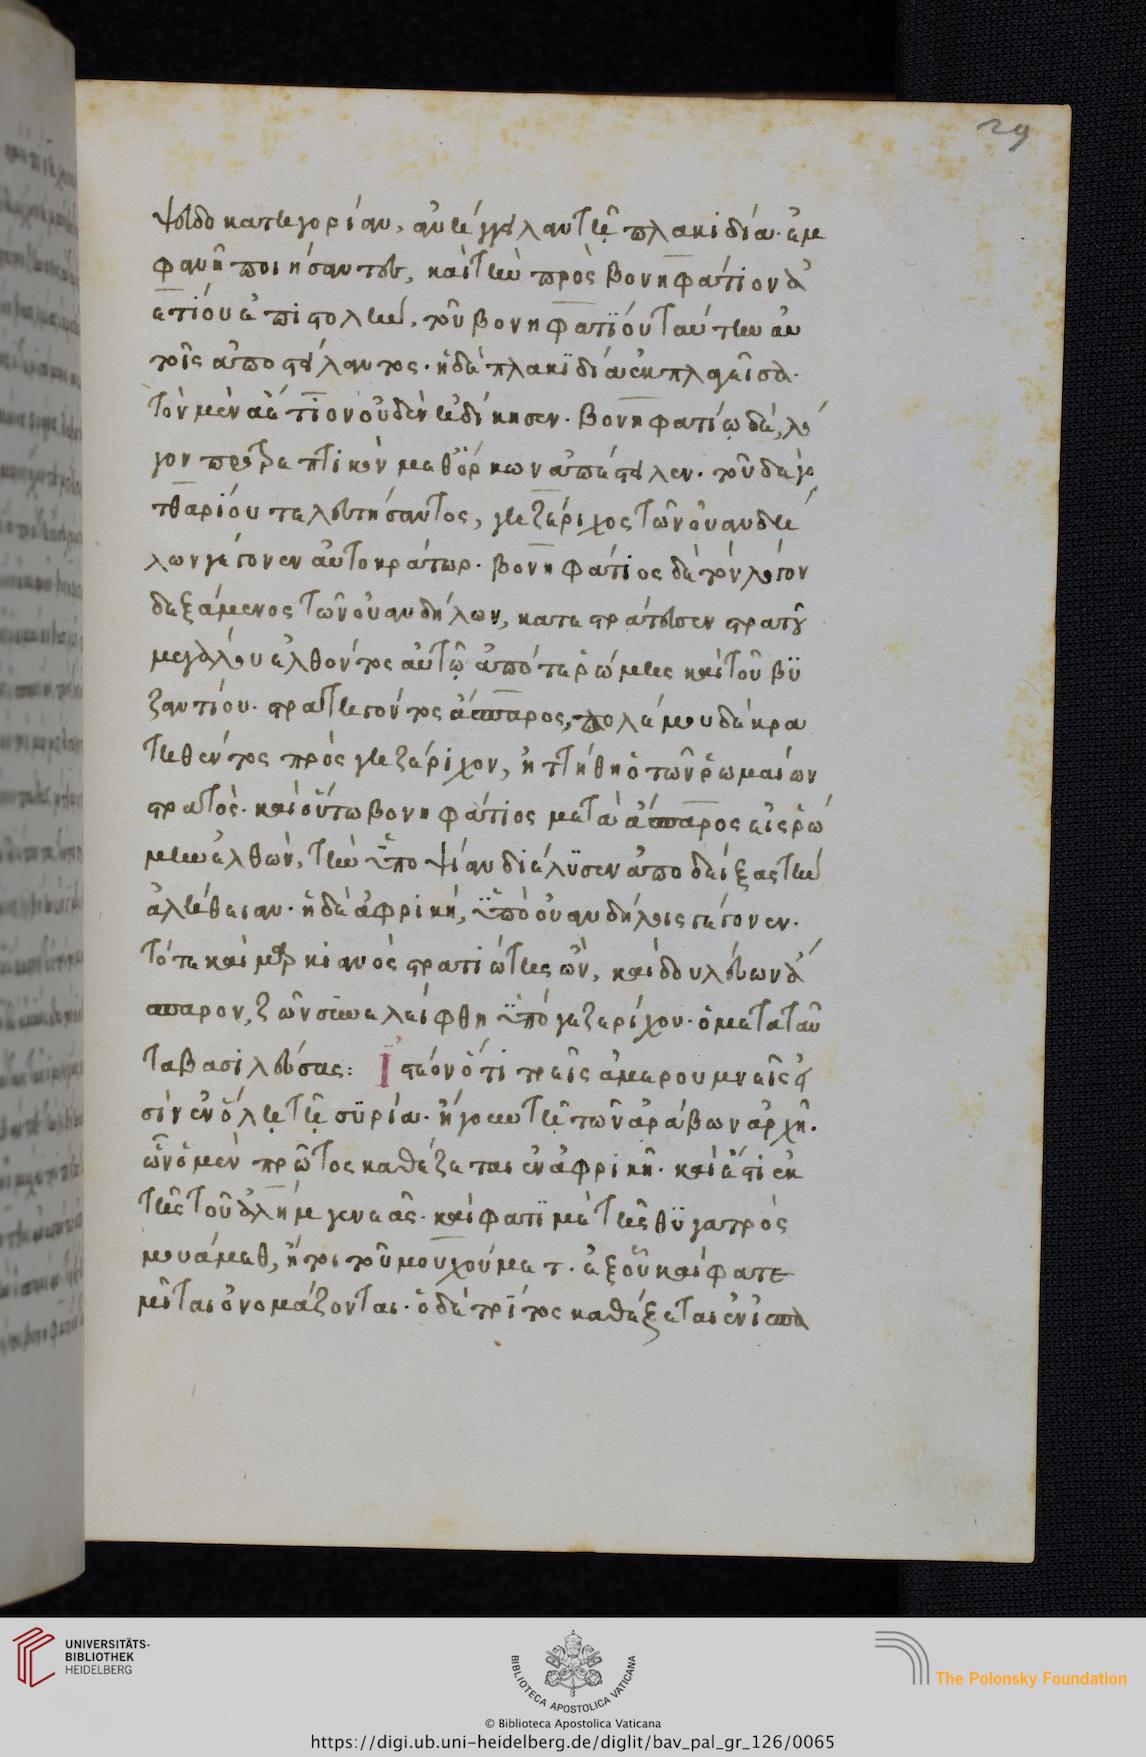 29
ψευδοκατηγορίαν, ἀνήγγειλαν τῇ πλακιδίᾳ· ἐμ
φανῆ ποιήσαντες, καὶ τὴν πρὸς βονηφάτιον ἀ
ετίου ἐπιστολήν, τοῦ βονηφατίου ταύτην αὐ
τοῖς ἀποστείλαντος· ἡ δὲ πλακιδία ἐκπλαγεῖσα·
τὸν μὲν ἀέτιον οὐδὲν ἠδίκησεν· βονηφατίῳ δὲ, λό
γον προτρεπτικὸν μεθ' ὅρκων ἀπέστειλεν. τοῦ δὲ γο
τθαρίου τελευτήσαντος, γηζέριχος τῶν οὐανδή
λων γέγονεν αὐτοκράτωρ· βονηφάτιος δὲ τὸν λόγον
δεξάμενος τῶν οὐανδήλων, κατεστράτευσεν στρατοῦ
μεγάλου ἐλθόντος αὐτῷ ἀπό τε ῥώμης καὶ τοῦ βυ
ζαντίου· στρατηγοῦντος ἄσπαρος, πολέμου δὲ κρα
τηθέντος πρὸς γηζέριχον, ἡττήθη ὁ τῶν ῥωμαίων
στρατός· καὶ οὕτω βονηφάτιος μετὰ ἄσπαρος εἰς ῥώ
μην ἐλθὼν, τὴν ὑποψίαν διέλυσεν ἀποδείξας τὴν
ἀλήθειαν· ἡ δὲ ἀφρικὴ, ὑπὸ οὐανδήλοις γέγονεν·
τότε καὶ μαρκιανὸς στρατιώτης ὢν, καὶ δουλεύων ἄ
σπαρον, ζῶν συνελείφθη ὑπὸ γεζερίχου· ὁ μετὰ ταῦ
τα βασιλεύσας: Ἰστέον ὅτι τρεῖς ἀμερουμνεῖς εἰ
σὶν ἐν ὅλῃ τῇ συρίᾳ· ἤγουν τῇ τῶν ἀράβων ἀρχῇ.
ὧν ὁ μὲν πρῶτος καθέζεται ἐν ἀφρικῇ· καὶ ἔστι ἐκ
τῆς τοῦ ἀλήμ γενεᾶς· καὶ φατιμὲ τῆς θυγατρὸς
μουάμεθ, ἤτοι τοῦ μουχούμετ. ἐξ οὗ καὶ φατε
μῖται ὀνομάζονται· ὁ δὲ τρίτος καθέζεται ἐν ἱσπα
UNIVERSITÄTS-
BIBLIOTHEK
HEIDELBERG
BIBLIOTECA APOSTOLICA VATICANA
© Biblioteca Apostolica Vaticana
The Polonsky Foundation
https://digi.ub.uni-heidelberg.de/diglit/bav_pal_gr_126/0065